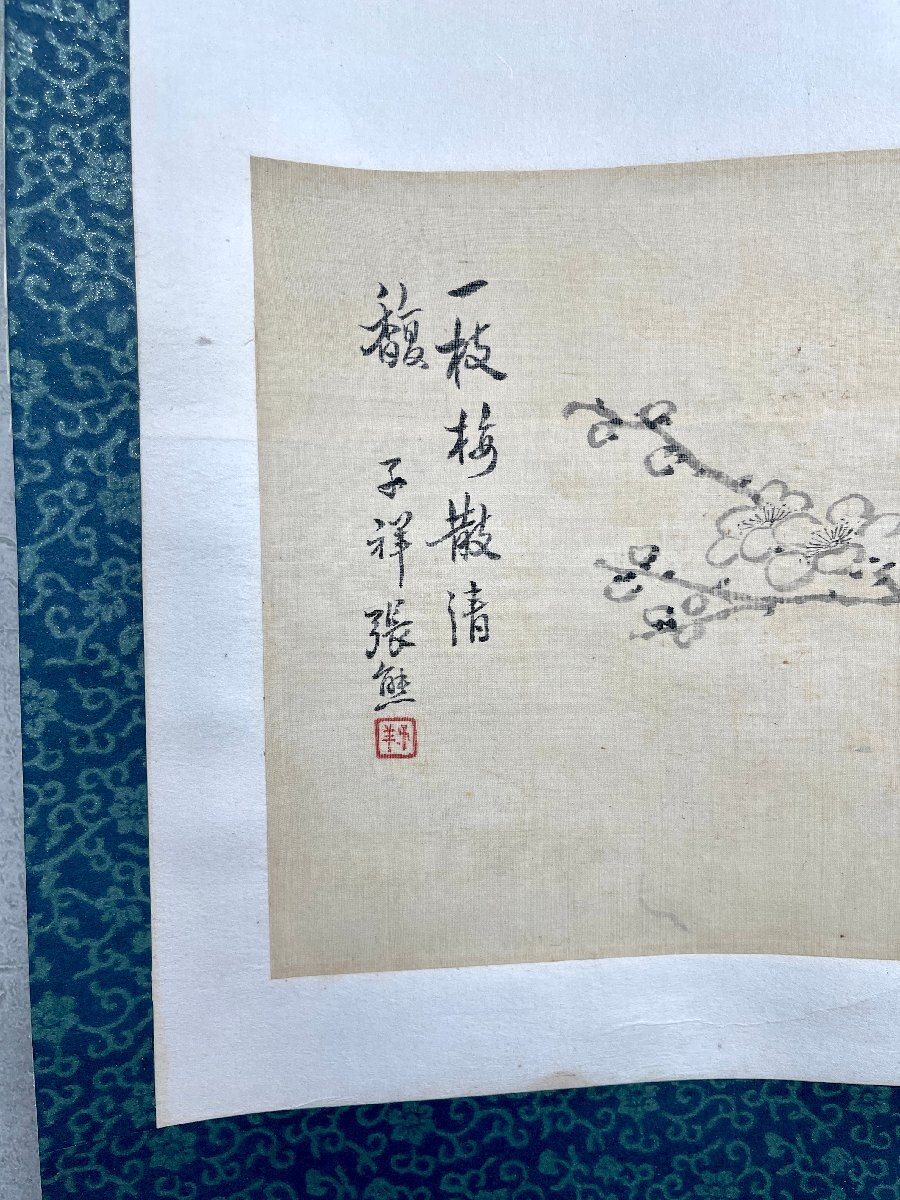 一枝梅散清
馥 子祥張熊
子祥